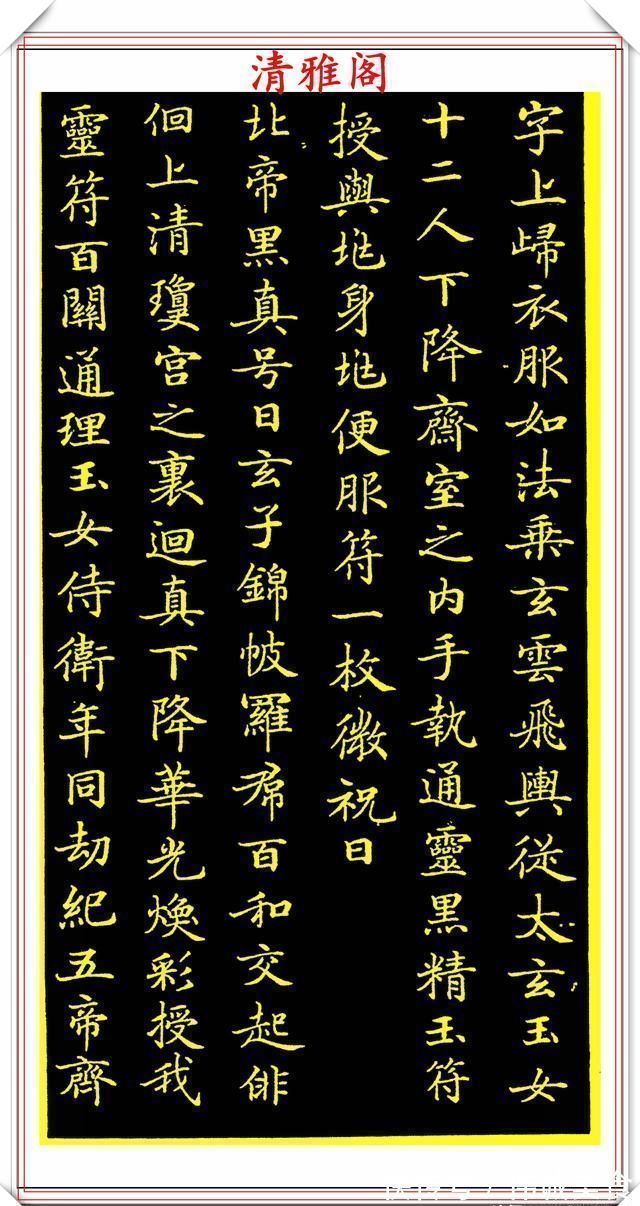 清雅阁
字上歸衣服如法乗玄雲飛輿従太玄玉女
十二人下降齋室之内手執通靈黒精玉符
授與兆身兆便服符一枚微祝曰
北帝黒真号曰玄子錦帔羅帬百和交起俳
佪上清瓊宮之裏迴真下降華光煥彩授我
靈符百關通理玉女侍衛年同劫紀五帝齊